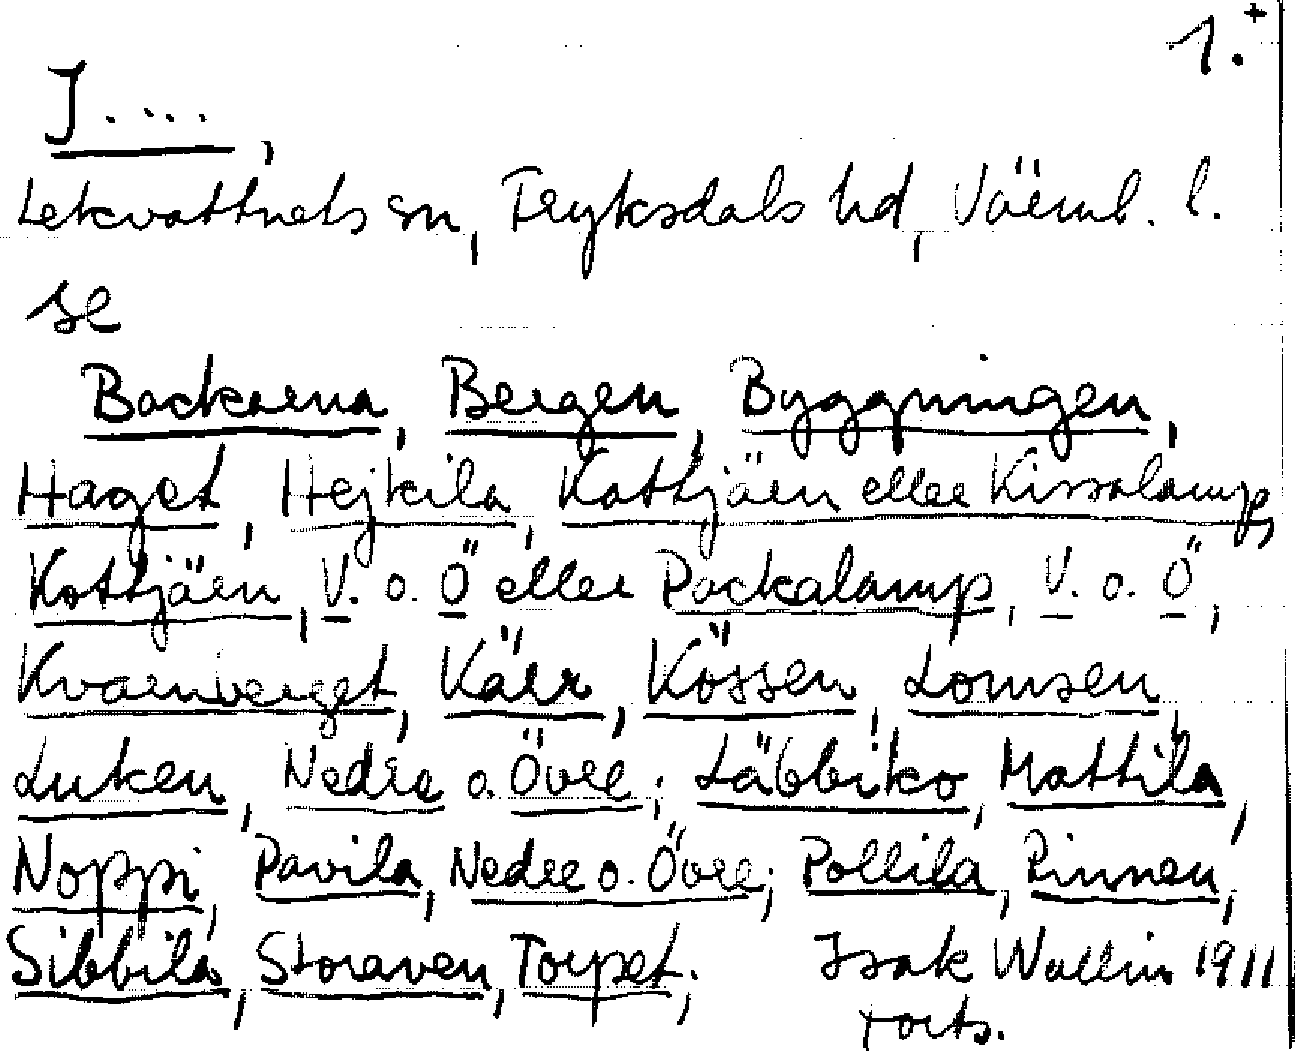 1.+
J....,
Lekvattnets sn, Fryksdals hd, Värml. l.
se
Backarna, Bergen, Byggningen,
Haget, Hejkila, Kattjärn eller Kissalamp,
Kottjärn, V. o. Ö eller Packalamp, V. o. Ö,
Kvarnberget, Kärr, Kössen, Lomsen,
Luken, Nedre o. Övre; Läbbiko, Mattila,
Noppi, Pavila, Nedre o. Övre; Pollila, Rinnen,
Sibbila, Storaven, Torpet; Isak Wallin 1911
forts.